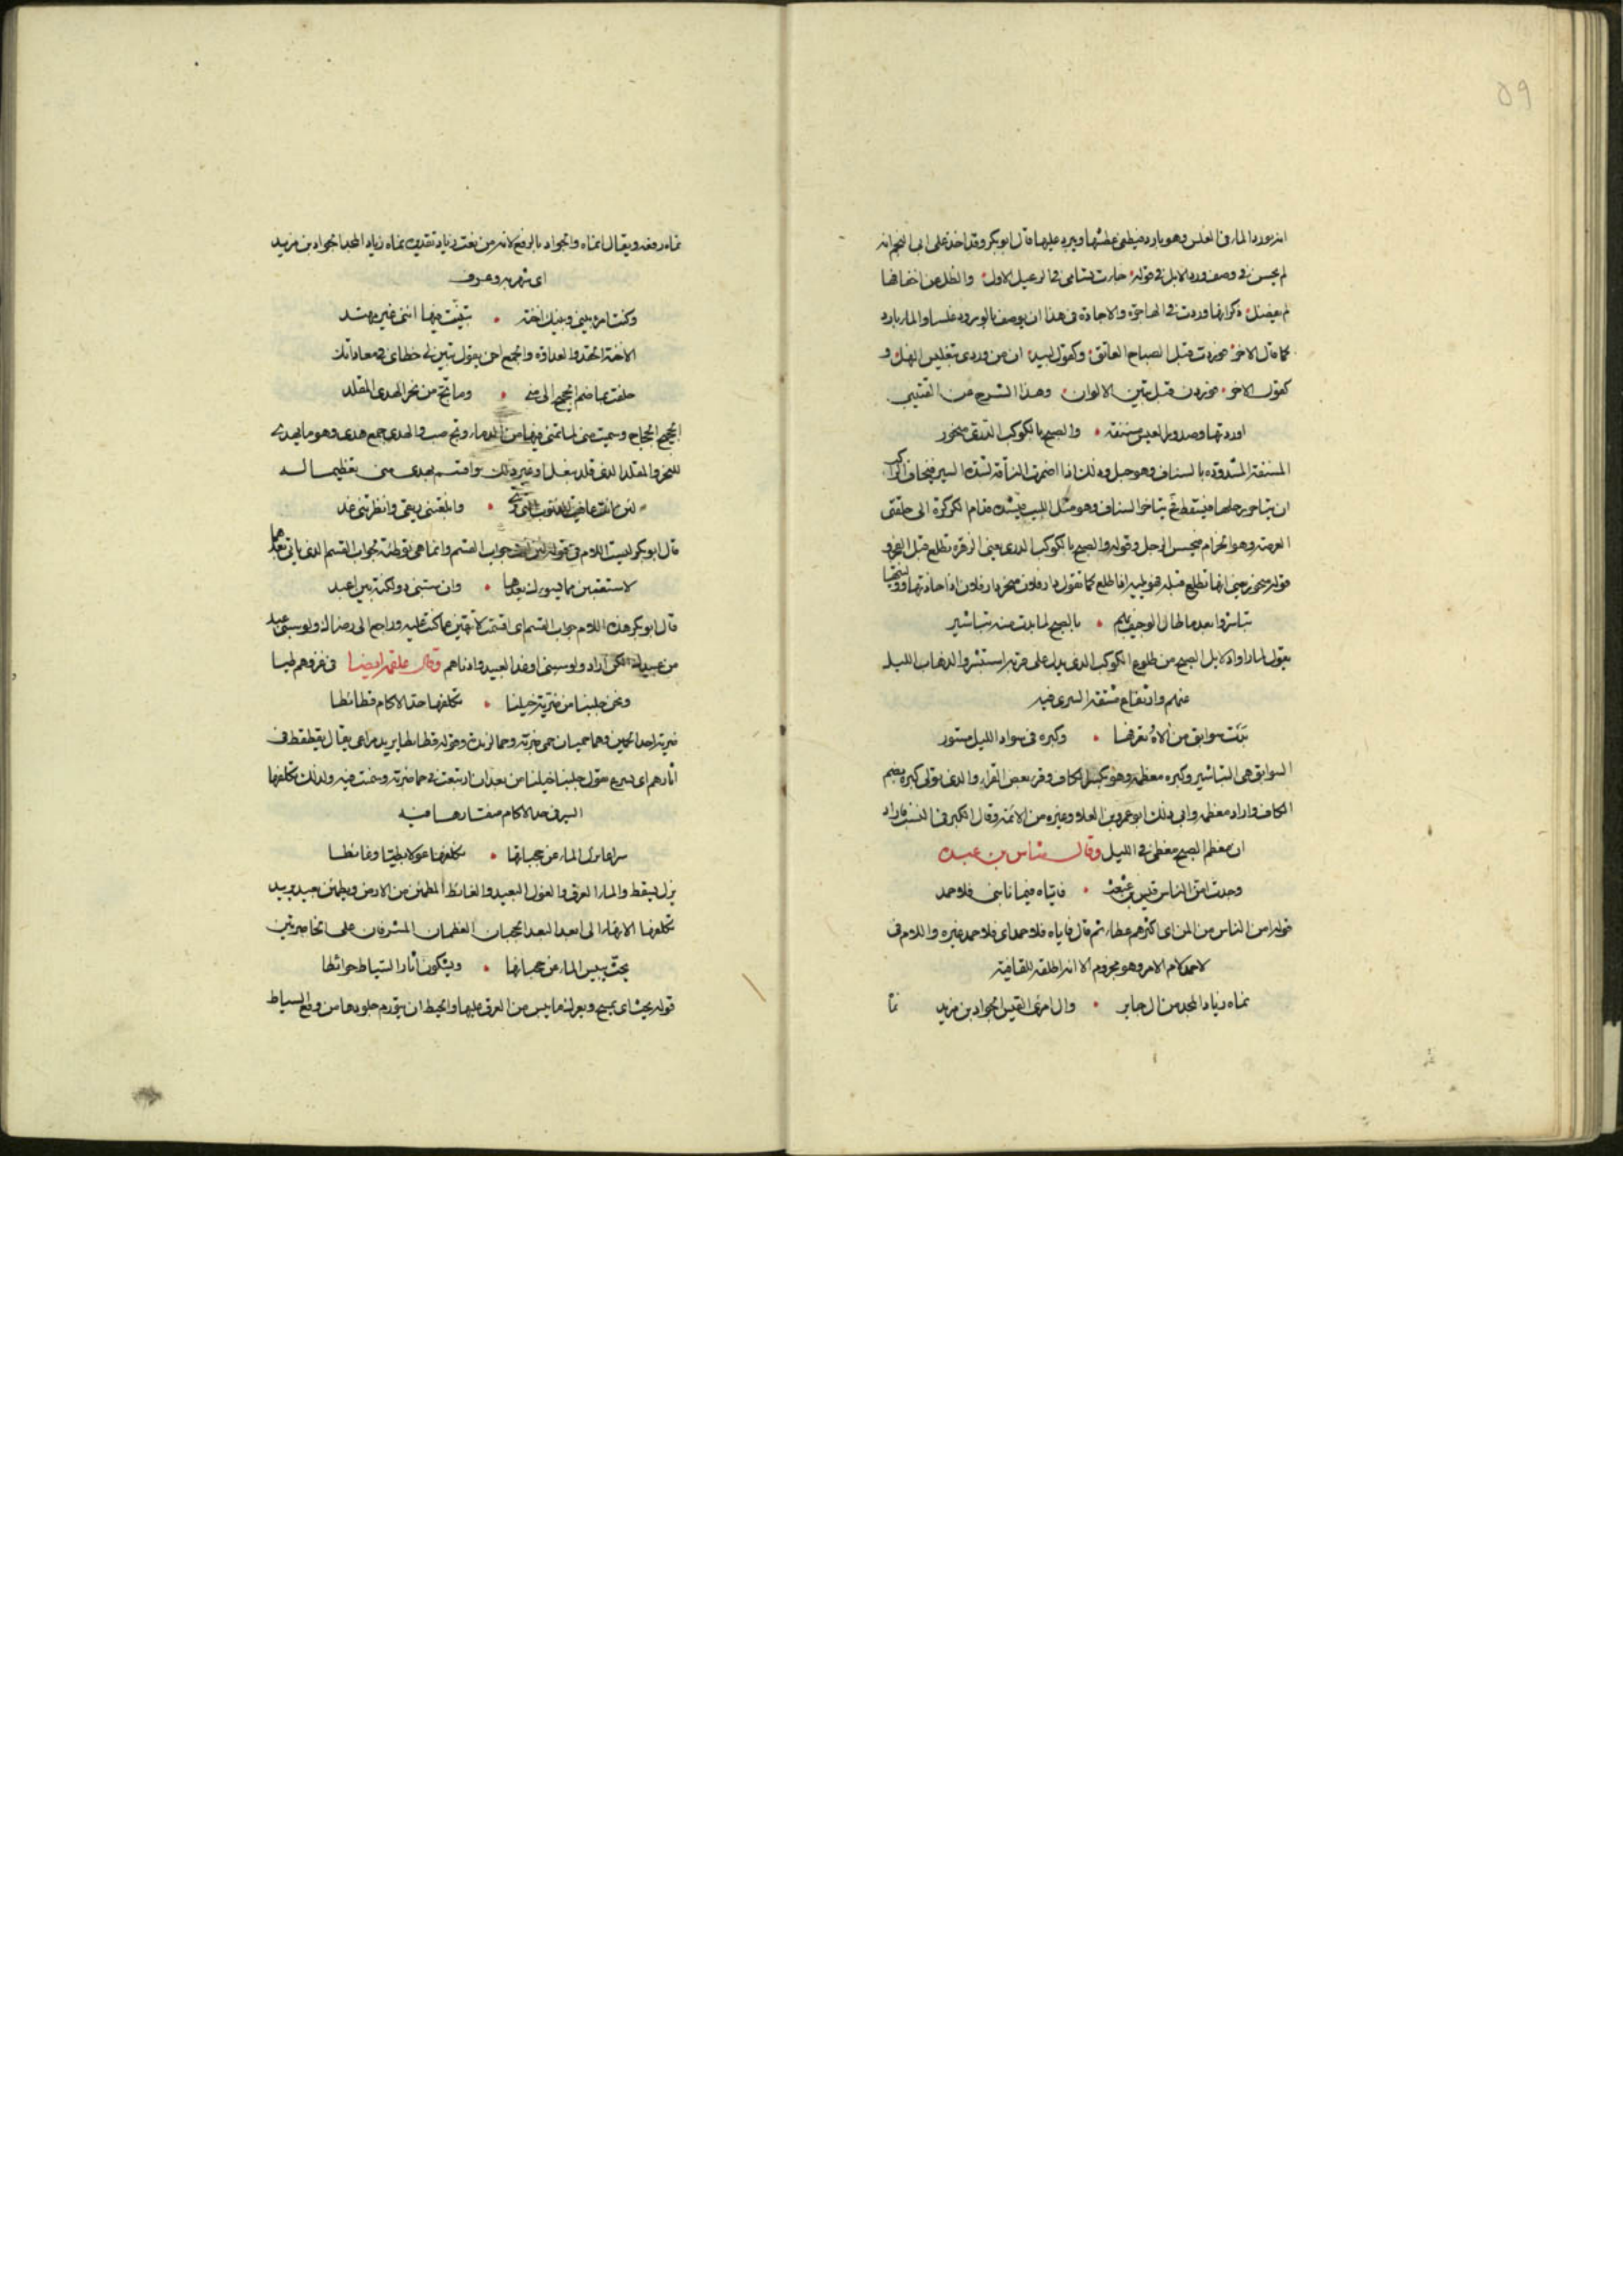 ٥٩
انه يورد الماء في الغلس وهو بارد فيطفئ عطشها ويبرد عليها قال ابو بكر وقد اخذ على ابي النجم انه
لم يحسن في وصف ورد الابل في قوله جاءت تسامى في الرعيل الاول والظل عن اخفافها
لم يفضل ذكر انها وردت في الهاجرة والاجادة في هذا ان يوصف بالورود غلسا والماء بارد
كما قال الاخر فوردت قبل الصباح الفاتق وكقول لبيد ان من وردي تغليس النهل و
كقول الاخر فوردن قبل تبين الالوان وهذا الشرح عن القتيبي
اوردتها وصدور العيس مسنفة والصبح بالكوكب الدري منحور
المسنفة المشدودة بالسناف وهو حبل وذلك اذا اضمرت الناقة لشدة السير فيخاف الراكب
ان يتاخر رحلها فيسقط ثم يتاخر السناف وهو مثل اللبب فيشد مقدام الكركرة الى حلقتي
الغرضة وهو الحزام فيحبس الرحل وقوله والصبح بالكوكب الدري يعني الزهرة تطلع قبل الفجر و
قوله منحور يعني انها تطلع قبله فهو يليها اذا طلع كما تقول دار فلان منحر دار فلان اذا حاذتها واستقبلتها
تباشروا بعد ما طال الوجيف بهم بالصبح لما بدت منه تباشير
يقول لما راوا دلائل الصبح من طلوع الكوكب الذي يدل على قربه استبشروا لذهاب الليل
عنهم وارتفاع مشقة السرى فيه
بدت سوابق من اولاه نعرفها وكبره في سواد الليل مستور
السوابق هي التباشير وكبره معظمه وهو بكسر الكاف وقرا بعض القراء والذي تولى كبره بضم
الكاف واراد معظمه وابى ذلك ابو عمرو بن العلاء وغيره من الائمة وقال الكبر في النسب فاراد
ان معظم الصبح مغطى في الليل وقال شاس بن عبدة
وجدت امن الناس قيس بن عثعث فاياه فيما نابني فلاحمد
قوله امن الناس من المن اي اكثرهم عطاء ثم قال فاياه فلاحمد اي فلا احمد غيره واللام في
لاحمد لام الامر وهو مجزوم الا انه اطلقه للقافية
نماه زياد المجد من ال جابر وال امرئ القيس الجواد بن مزيد
نما
نماه رفعه ويقال انماه والجواد بالرفع لانه من نعت زياد تقديره نماه زياد المجد الجواد بن مزيد
اي شهر به وعرف
وكنت امرءا بيني وبينك احنة تبينت فيها انني غير مهتد
الاحنة الحقد والعداوة والجمع احن يقول تبين لي خطاي في معاداتك
حلفت بما ضم الحجيج الى منى وما ثج من نحر الهدي المقلد
الحجيج الحجاج وسميت منى لما تمنى فيها من الدماء وثج صب والهدي جمع هدي وهو ما يهدى
للنحر والمقلد الذي قلد بنعل او غير ذلك واقسم بهدي منى تعظيما له
لئن انت عافيت الذنوب التي ترى وابلغتني ريقي وانظرتني غد
قال ابو بكر ليست اللام في قوله لئن انت جواب القسم وانما هي توطئة لجواب القسم الذي ياتي بعدها
لاستعتبن مما يسوءك بعدها وان سبني ذو لكنة بين اعبد
قال ابو بكر هذه اللام جواب القسم اي اقسمت لاعتبن عما كنت عليه وراجع الى رضاك ولو سبني عبد
من عبيدك الكن اراد ولو سبني اوغد العبيد وادناهم وقال علقمة ايضا في غزوهم طيا
ونحن جلبنا من ضرية خيلنا نكلفها حد الاكام قطائطا
ضرية احد الحميين وهما حميان حمى ضرية وحما الربذة وقوله قطائطا يريد سراعا يقال يقطقط في
اثارهم اي يسرع يقول جلبنا خيلنا من بعد ان ارتبعت في حما ضرية وسمنت فيه ولذلك تكلفها
السير في حد الاكام معتادها منه
سراعا يزل الماء عن حجباتها نكلفها غولا بطينا وغائطا
يزل يسقط والماء العرق والغول البعيد والغائط المطمئن من الارض وبطين بعيد يريد
نكلفها الابقاء الى ابعد البعد الحجبان العظمان المشرفان على الخاصرتين
يحت يبيس الماء عن حجباتها ويشكون اثار السياط خوابطا
قوله يحت اي يمسح ويعرك ما يبس من العرق عليها والحبط ان يتورم جلودها من وقع السياط